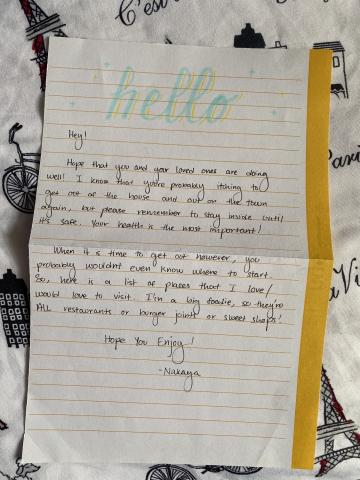 C'est
hello
Hey!
Hope that you and your loved ones are doing
well! I know that you're probably itching to
get out of the house and out on the town
again, but please remember to stay inside until
it's safe. Your health is the most important!
When it is time to get out however, you
probably wouldn't even know where to start.
So, here is a list of places that I love/
would love to visit. I'm a big foodie, so they're
ALL restaurants or burger joints or sweet shops!
Hope You Enjoy!
-Nakaya
Paris
la Vi